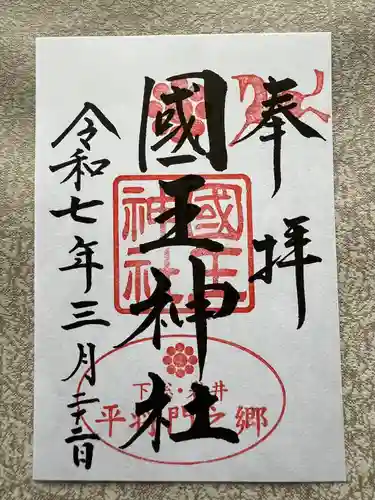 奉拜
國王神社
國王神社
下総・岩井
平将門之郷
令和七年三月二十二日